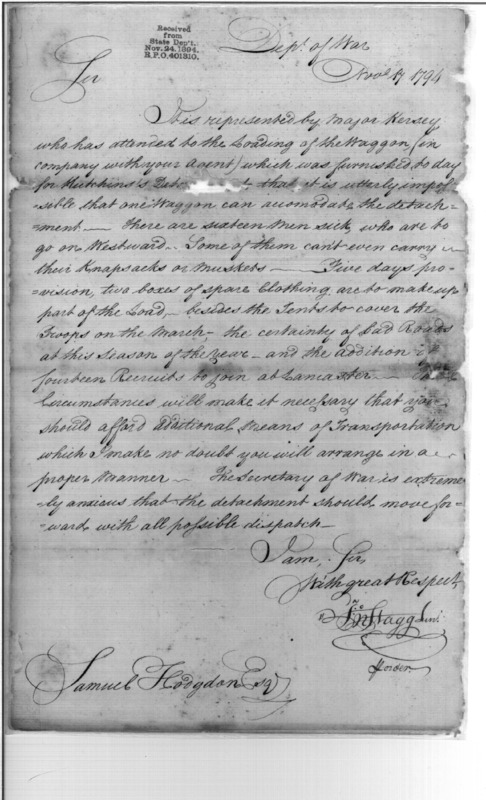 Received
from
State Dep't.
Nov. 24. 1894.
R.P.O. 401310.
Dept. of War
Novr 17 1794
Sir
It is represented by Major Kersey
who has attended to the Loading of the Waggon (in
company with your Agent) which was furnished to day
for Hutchins's that it is utterly impos=
=sible that one Waggon can accomodate the detach=
=ment — There are sixteen Men sick, who are to
go on Westward. Some of them cant even carry
their Knapsacks or Muskets — Five days pro=
=vision, two boxes of spare Clothing are to make up
part of the Load, — besides the Tents to cover the
Troops on the March, the certainty of bad Roads
at this Season of the year — and the addition of
fourteen Recruits to join at Lancaster —
Circumstances will make it necessary that you
should afford additional Means of Transportation
which I make no doubt you will arrange in a
proper Manner — The Secretary of War is extreme=
=ly anxious that the detachment should move for=
=ward with all possible dispatch —
I am, Sir,
With great Respect,
Jno Stagg Junr
Samuel Hodgdon Esqr